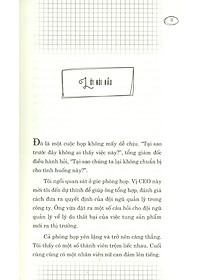 Lời nói đầu
Đã là một cuộc họp không mấy dễ chịu. "Tại sao
trước đây không ai thấy việc này?", tổng giám đốc
điều hành hỏi, "Tại sao chúng ta lại không chuẩn bị
cho tình huống này?".
Tôi ngồi quan sát ở góc phòng họp. Vị CEO này
mời tôi đến dự thính để giúp ông tổng hợp, đánh giá
cách đưa ra quyết định của đội ngũ quản lý trong
công ty. Ông vẫn đặt ra một số câu hỏi cho đội ngũ
quản lý về lý do thất bại của việc tung sản phẩm
mới ra thị trường.
Cả phòng họp yên lặng và trở nên căng thẳng.
Tôi thấy có một số thành viên trộm liếc nhau. Cuối
cùng cũng có một nhân viên nữ can đảm lên tiếng.